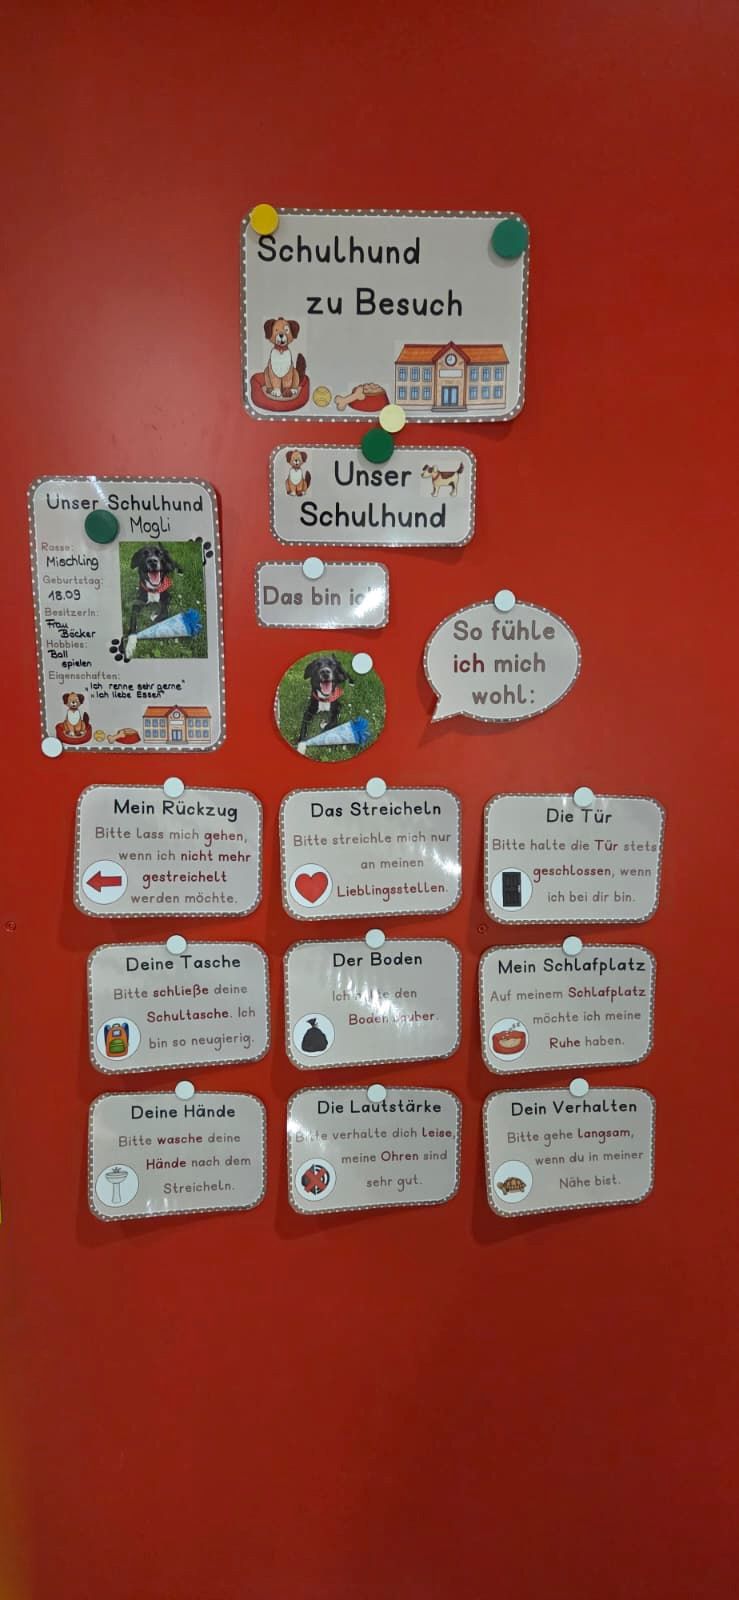 Schulhund
zu Besuch
Unser
Schulhund
Unser Schulhund
Mogli
Rasse:
Mischling
Geburtstag:
18.09
BesitzerIn:
Frau
Böcker
Hobbies:
Ball
spielen
Eigenschaften:
"Ich renne sehr gerne"
"Ich liebe Essen"
Das bin ich
So fühle
ich mich
wohl:
Mein Rückzug
Bitte lass mich gehen,
wenn ich nicht mehr
gestreichelt
werden möchte.
Das Streicheln
Bitte streichle mich nur
an meinen
Lieblingsstellen.
Die Tür
Bitte halte die Tür stets
geschlossen, wenn
ich bei dir bin.
Deine Tasche
Bitte schließe deine
Schultasche. Ich
bin so neugierig.
Der Boden
Ich den
Boden sauber.
Mein Schlafplatz
Auf meinem Schlafplatz
möchte ich meine
Ruhe haben.
Deine Hände
Bitte wasche deine
Hände nach dem
Streicheln.
Die Lautstärke
Bitte verhalte dich leise,
meine Ohren sind
sehr gut.
Dein Verhalten
Bitte gehe langsam,
wenn du in meiner
Nähe bist.